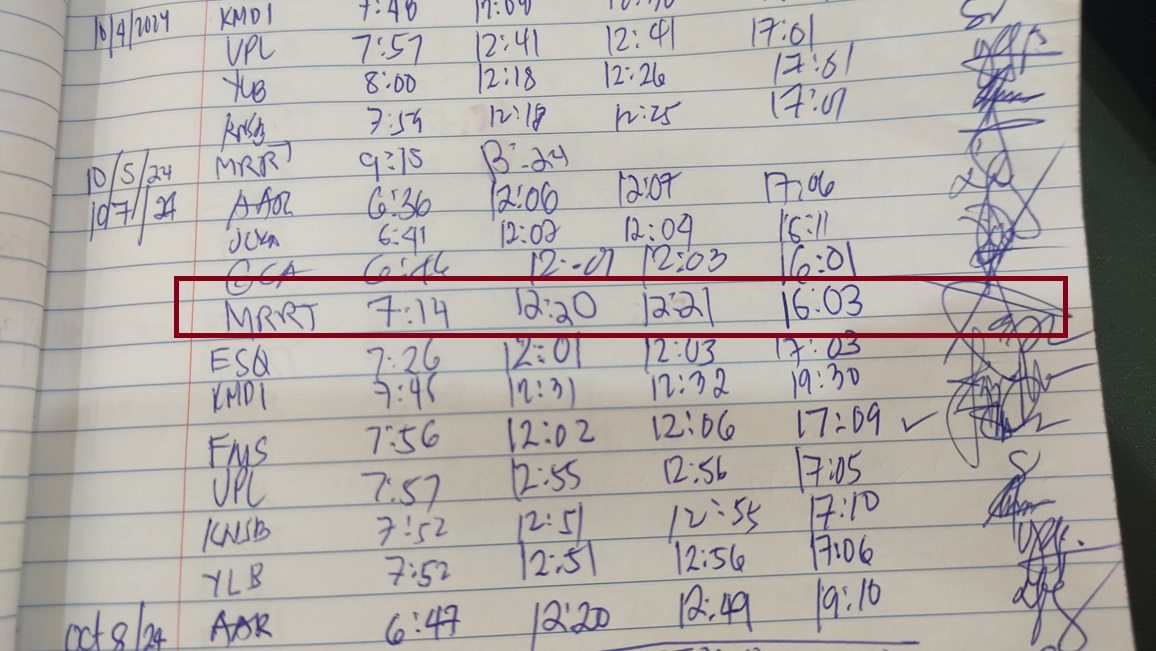 10/4/2024 KMDI 7:48
VPL 7:57 12:41 12:41 17:01
YLB 8:00 12:18 12:26 17:01
KNSB 7:59 12:18 12:25 17:01
10/5/24 MRRT 9:15 13:24
10/7/24 AAR 6:36 12:06 12:07 17:06
6:41 12:02 12:04 16:11
GCA 6:46 12:01 12:03 16:01
MRRT 7:14 12:20 12:21 16:03
ESQ 7:26 12:01 12:03 17:03
KMDI 7:45 12:31 12:32 19:30
FMS 7:56 12:02 12:06 17:09 ✓
VPL 7:57 12:55 12:56 17:05
KNSB 7:52 12:51 12:55 17:10
YLB 7:52 12:51 12:56 17:06
Oct 8/24 AAR 6:47 12:20 12:49 19:10